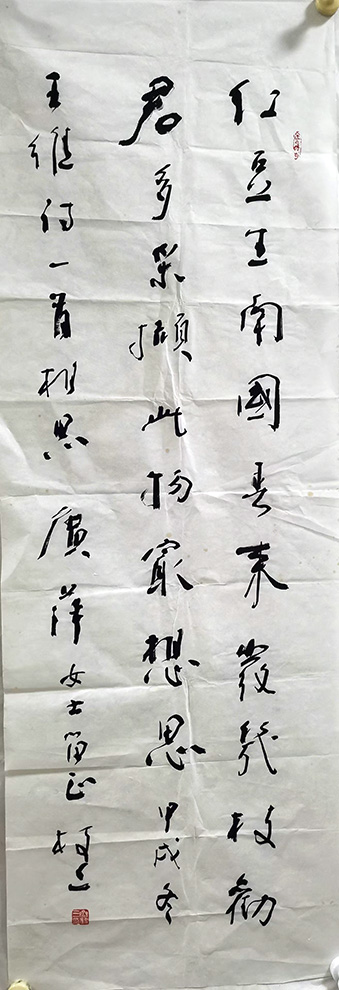 红豆生南國春来發幾枝勸
君多采撷此物最想思甲戌冬
王维诗一首相思广萍女士留正